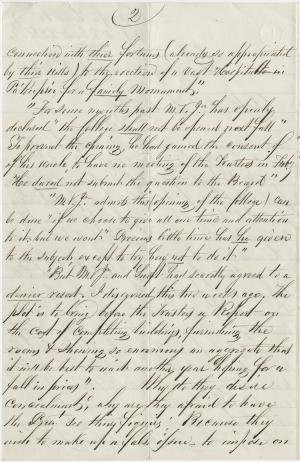 2
connection with their fortunes (already so appropriated
by their Wills) to the erection of a vast Hospital in
for a family Monument."
"For some months past M.T.J. has openly
declared the College shall not be opened next fall"
To prevent the change, he had gained the consent of
of his Uncle to have no meeting of the Trustees in Feby
"He dared not submit the question to the Board"
"M.V.J. admits this opening of the College can
be done if we choose to give all our time and attention
to it, but we won't" Precious little time has he given
to the subject except to try how not to do it"
"But M.V.J. and Swift had secretly agreed to a
desired result. I discovered this two weeks ago, the
plot is to bring before the Trustees a Report on
the cost of completing buildings, furnishing the
rooms & shewing so enormous an aggregate that
it will be best to wait another year hoping for a
fall in prices". Why do they desire
concealment, why are they afraid to have
the see their figures? Because they
wish to make up a false issue to impose on